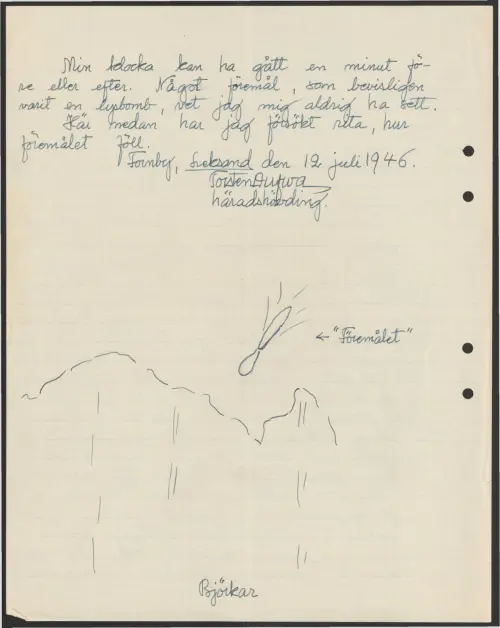 Min klocka kan ha gått en minut fö-
re eller efter. Något föremål, som bevisligen
varit en lysbomb, vet jag mig aldrig ha sett.
Här nedan har jag försökt rita, hur
föremålet föll.
Tornby, Leksand den 12 juli 1946.
Torsten
häradshövding.
← "Föremålet"
Björkar